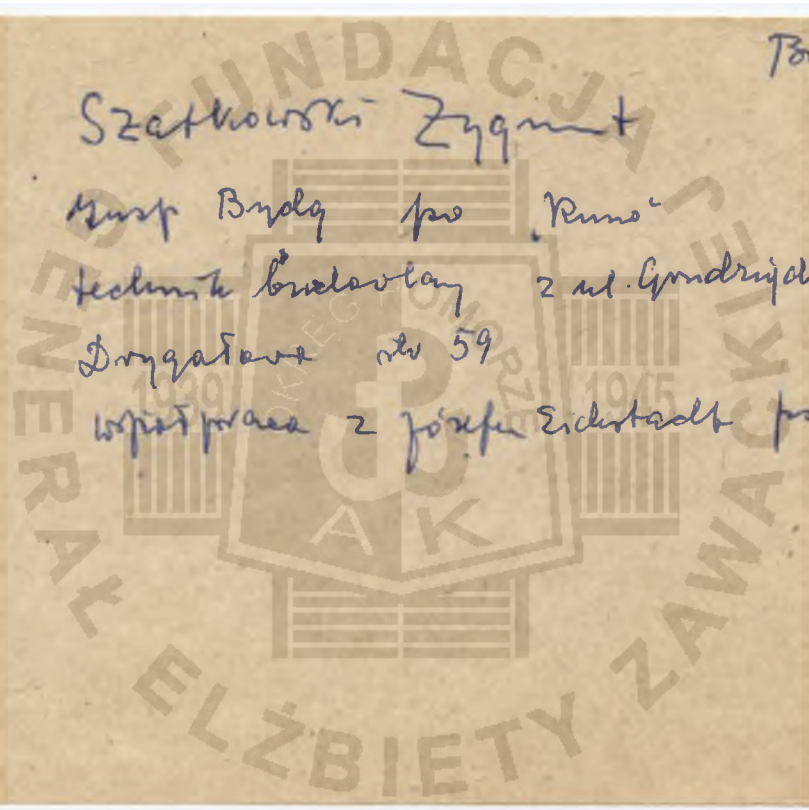 Szatkowski Zygmunt
Insp Bydg ps "Runo"
technik budowlany z ul. Grudziądz
Drygałowa 59
współpraca z Józefem Eichstadt ps
FUNDACJA GENERAŁ ELŻBIETY ZAWACKIEJ
OKRĘG POMORZE
1939 1945
AK